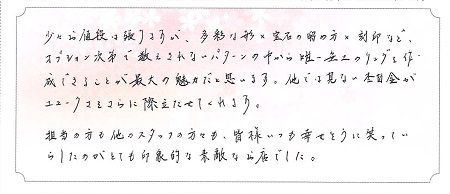 少々お値段は張りますが、多彩な形×宝石の留め方×刻印など、
オプション次第で数えきれないパターンの中から唯一無二のリングを作
成できることが最大の魅力だと思います。他では見ない木目金が
ユニークさをさらに際立たせてくれます。
担当の方も他のスタッフの方々も、皆様いつも幸せそうに笑ってい
らしたのがとても印象的な素敵なお店でした。